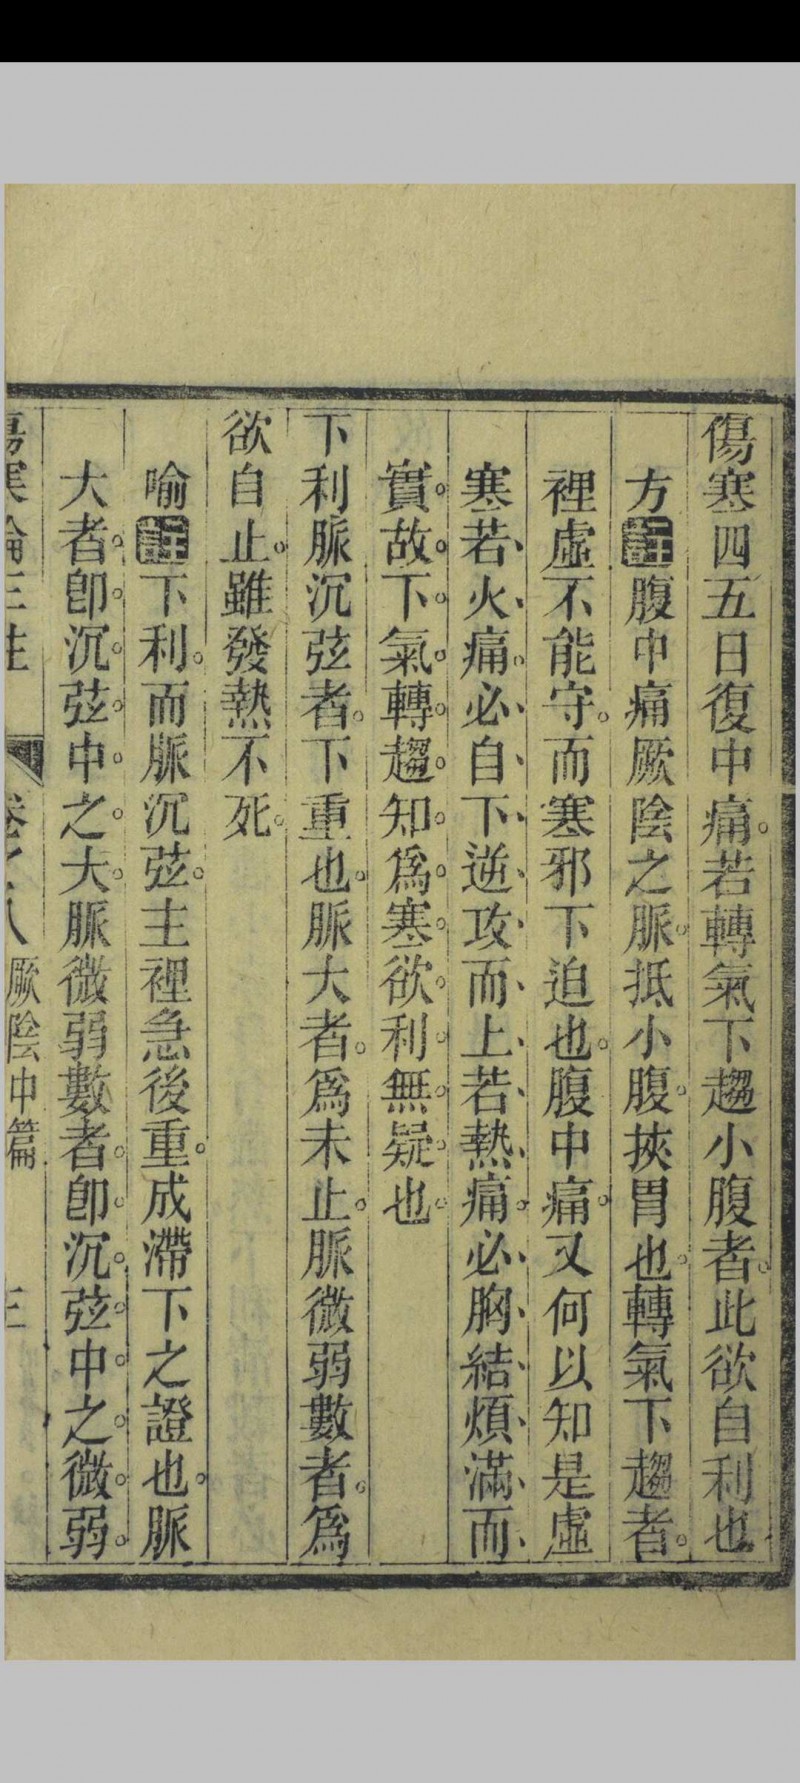 傷寒四五日復中痛。若轉氣下趨小腹者。此欲自利也
方註腹中痛厥陰之脈。抵小腹。挾胃也。轉氣下趨者。
裡虛不能守。而寒邪下迫也。腹中痛。又何以知是虛
寒若、火、痛。必、自、下、逆、攻、而、上、若、熱、痛。必、胸、結、煩、滿、而、
實。故。下。氣。轉。趨。知。爲。寒。欲。利。無。疑。也。
下利脈沉弦者。下重也。脈大者。爲未止。脈微弱數者。爲
欲自止。雖發熱不死。
喻註下利。而脈沉弦。主裡急後重。成滯下之證也。脈
大者。卽。沉。弦。中。之。大。脈微弱數者。卽。沉。弦。中。之。微。弱。
傷寒論三註 卷之八 厥陰中篇 三